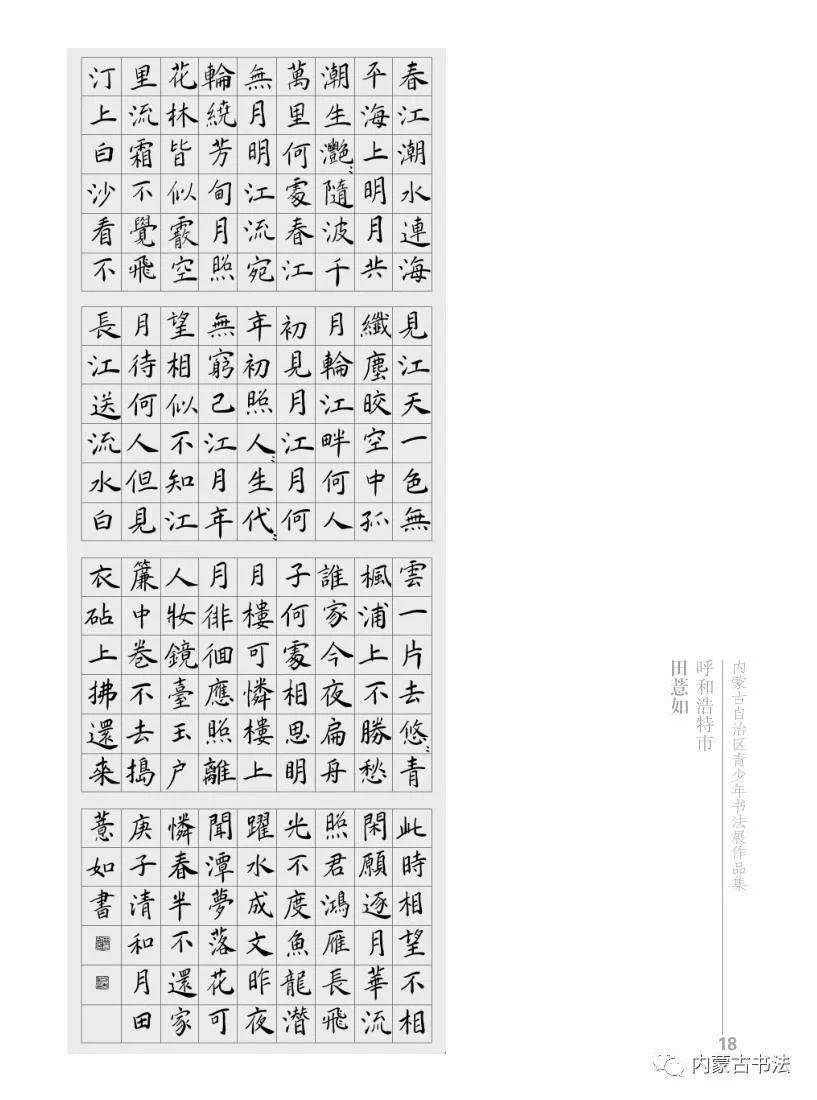 春江潮水連海
平海上明月共
潮生灩〻隨波千
萬里何處春江
無月明江流宛
輪繞芳甸月照
花林皆似霰空
里流霜不覺飛
汀上白沙看不
見江天一色無
纖塵皎空中孤
月輪江畔何人
初見月江月何
年初照人〻生代〻
無窮已江月年
望相似不知江
月待何人但見
長江送流水白
雲一片去悠〻青
楓浦上不勝愁
誰家今夜扁舟
子何處相思明
月樓可憐樓上
月徘徊應照離
人妝鏡臺玉户
簾中卷不去搗
衣砧上拂還來
此時相望不相
閑願逐月華流
照君鴻雁長飛
光不度魚龍潛
躍水成文昨夜
聞潭夢落花可
憐春半不還家
庚子清和月田
薏如書
内蒙古自治区青少年书法展作品集
呼和浩特市
田薏如
18
内蒙古书法